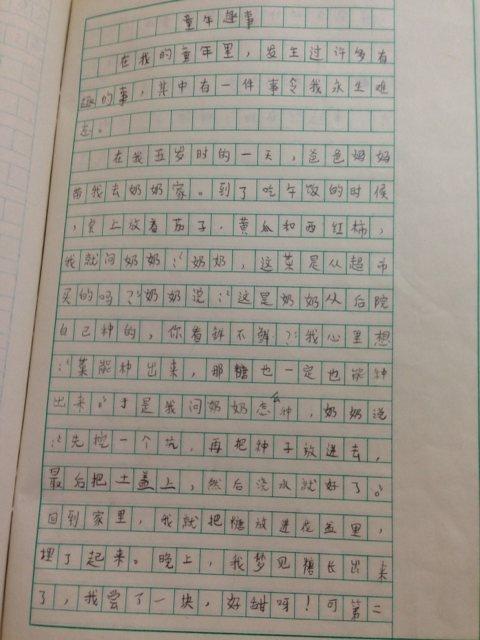 童年趣事
在我的童年里，发生过许多有
趣的事，其中有一件事令我永生难
忘。
在我五岁时的一天，爸爸妈妈
带我去奶奶家。到了吃午饭的时候
，桌上放着茄子、黄瓜和西红柿，
我就问奶奶：“奶奶，这菜是从超市
买的吗？”奶奶说：“这是奶奶从后院
自己种的，你看鲜不鲜？”我心里想
：“菜能种出来，那糖也一定也能种
出来。”于是我问奶奶怎么种，奶奶说
：“先挖一个坑，再把种子放进去，
最后把土盖上，然后浇水就好了。”
回到家里，我就把糖放进花盆里，
埋了起来。晚上，我梦见糖长出来
了，我尝了一块，好甜呀！可第二